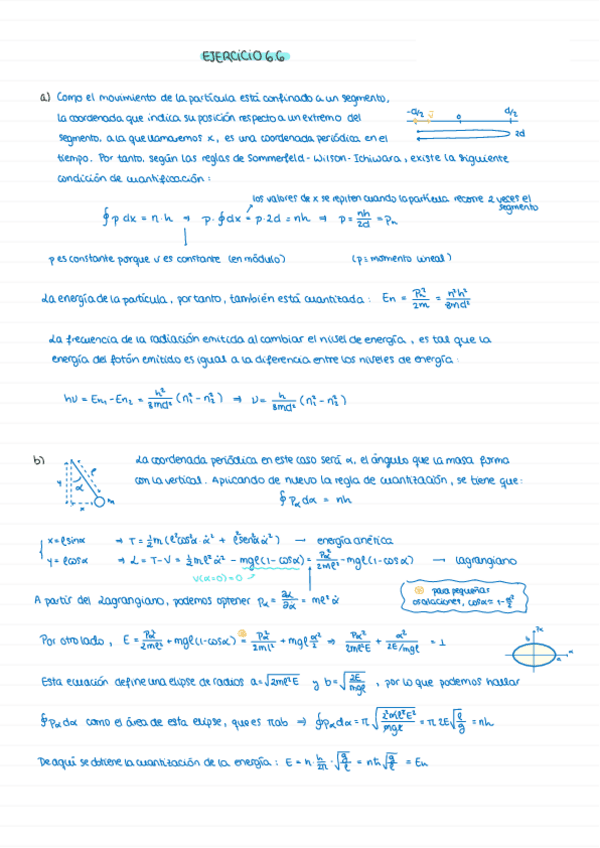 EJERCICIO 6.6
a) Como el movimiento de la partícula está confinado a un segmento,
la coordenada que indica su posición respecto a un extremo del
segmento, a la que llamaremos x, es una coordenada periódica en el
tiempo. Por tanto, según las reglas de Sommerfeld-Wilson-Ichiwara, existe la siguiente
condición de cuantificación:
-d/2 0 d/2
2d
los valores de x se repiten cuando la partícula recorre 2 veces el
segmento
∮ p dx = n·h ⇒ p·∮dx = p·2d = nh ⇒ p = nh/2d = pn
p es constante porque v es constante (en módulo) (p = momento lineal)
La energía de la partícula, por tanto, también está cuantizada: En = pn²/2m = n²h²/8md²
La frecuencia de la radiación emitida al cambiar el nivel de energía, es tal que la
energía del fotón emitido es igual a la diferencia entre los niveles de energía:
hν = En₁ - En₂ = h²/8md² (n₁² - n₂²) ⇒ ν = h/8md² (n₁² - n₂²)
b) La coordenada periódica en este caso será α, el ángulo que la masa forma
con la vertical. Aplicando de nuevo la regla de cuantización, se tiene que:
∮ pα dα = nh
y α ℓ m
x
x = ℓ sinα ⇒ T = ½m(ℓ²cos²α·α̇² + ℓ²sen²α α̇²) → energía cinética
y = ℓ cosα ⇒ L = T-V = ½mℓ²α̇² - mgℓ(1-cosα) = pα²/2mℓ² - mgℓ(1-cosα) → lagrangiano
V(α=0) = 0
para pequeñas
oscilaciones, cosα ≈ 1-α²/2
A partir del Lagrangiano, podemos obtener pα = ∂L/∂α̇ = mℓ²α̇
Por otro lado, E = pα²/2mℓ² + mgℓ(1-cosα) = pα²/2mℓ² + mgℓ α²/2 ⇒ pα²/2mℓ²E + α²/2E/mgℓ = 1
Esta ecuación define una elipse de radios a = √2mℓ²E y b = √2E/mgℓ, por lo que podemos hallar
∮pα dα como el área de esta elipse, que es πab ⇒ ∮pα dα = π √2²mℓ²E²/mgℓ = π 2E √ℓ/g = nh
De aquí se obtiene la cuantización de la energía: E = n·h/2π·√g/ℓ = nħ√g/ℓ = En